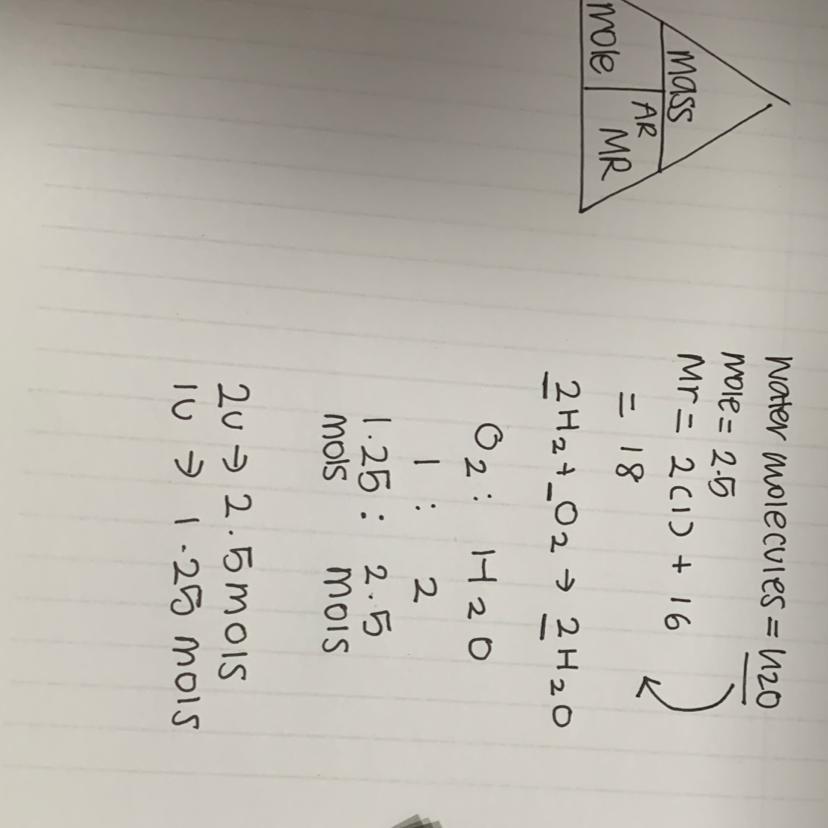 mass
mole
AR
MR
Water molecules = h2o
mole = 2.5
Mr = 2(1) + 16
= 18
2H2 + _O2 → 2H2O
O2 : H2O
1 : 2
1.25 : 2.5
mols mols
2u → 2.5 mols
1u → 1.25 mols